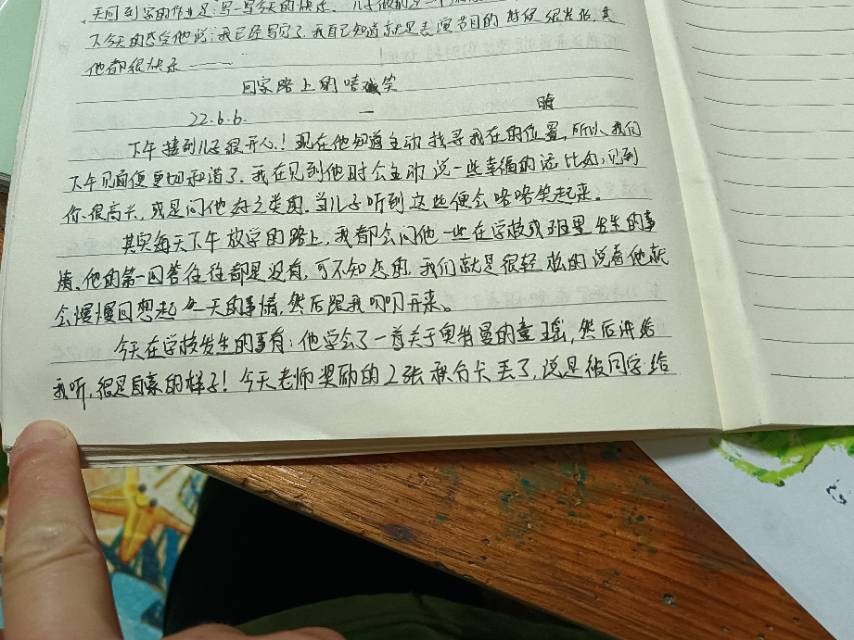 天回到家的作业是:写一写今天的快乐。儿子
下今天的 他说:我已经写完了,我自己知道就是表演节目的时候很发抖,其
他都很快乐——
回家路上的嘻嘻笑
22.6.6. 一 晴
下午接到儿子很开心!现在他知道主动找寻我在的位置,所以,我们
下午见面便更加和谐了。我在见到他时会主动说一些幸福的话比如,见到
你、很高兴,或是问他好之类的。当儿子听到这些便会咯咯笑起来。
其实每天下午放学的路上,我都会问他一些在学校或班里发生的事
情、他的第一回答往往都是没有,可不知怎的,我们就是很轻松的说着他就
会慢慢回想起这一天的事情,然后跟我叨叨开来。
今天在学校发生的事有:他学会了一首关于奥特曼的童瑶,然后讲给
我听,很是自豪的样子!今天老师奖励的2张积分卡丢了,说是被同学给